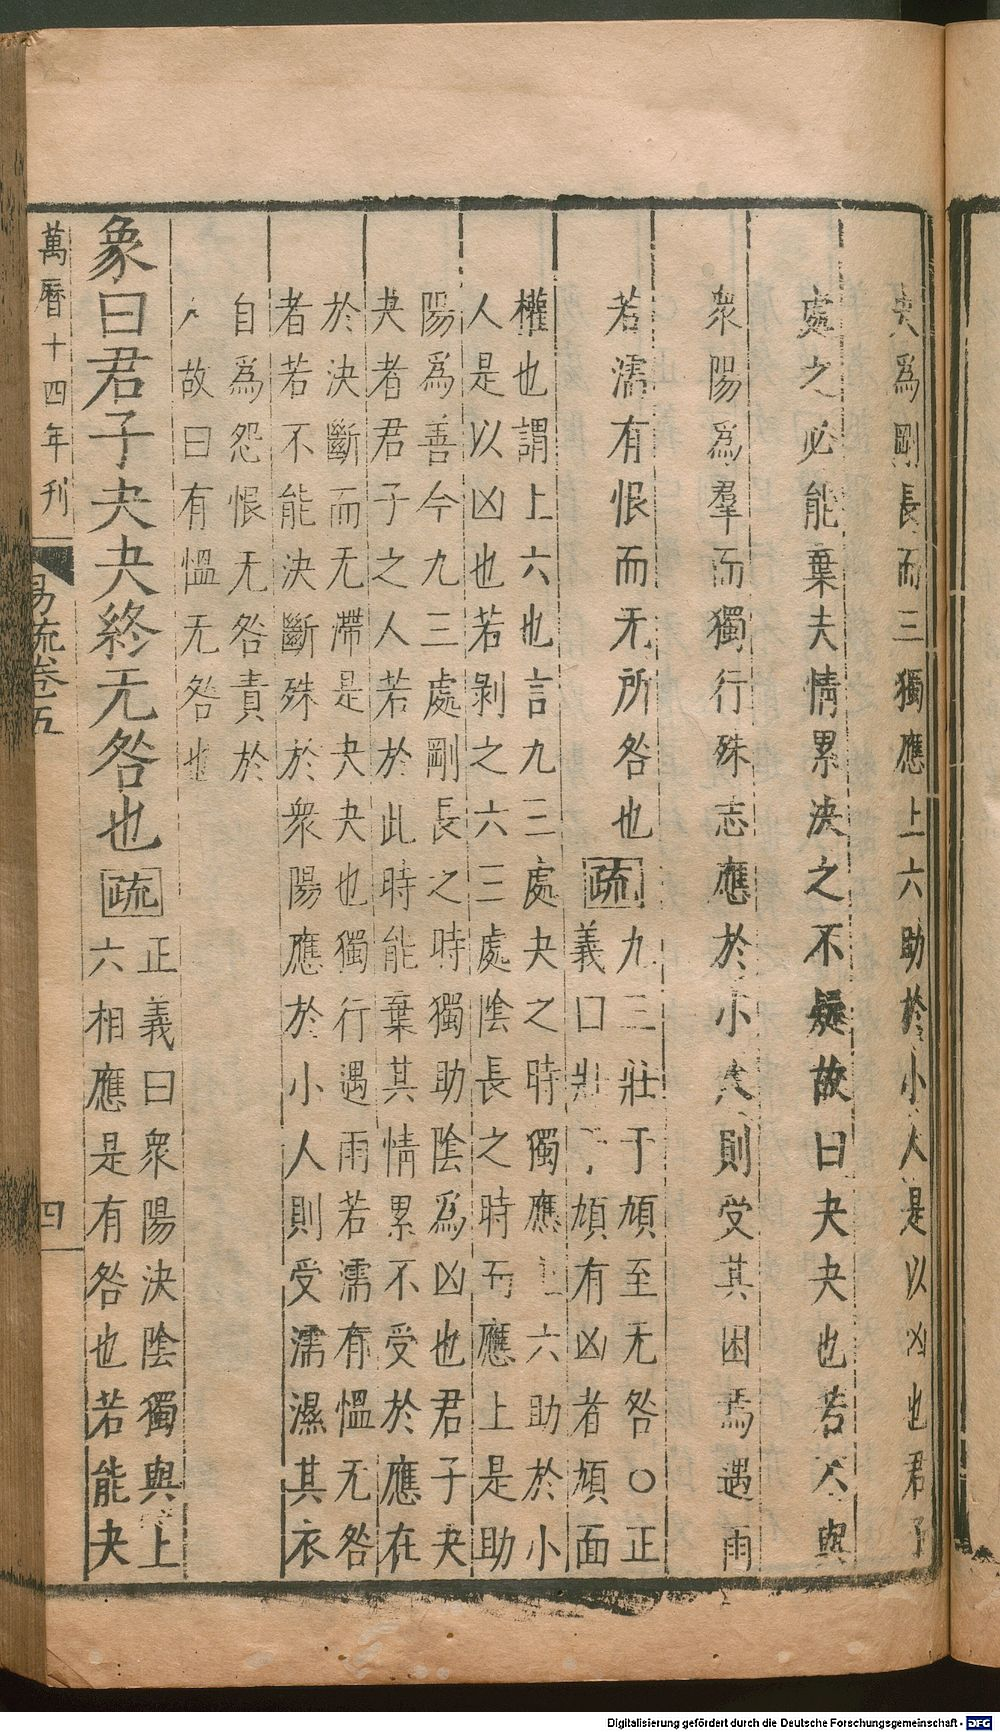 夬為剛長而三獨應上六助於小人是以凶也君子
處之必能棄夫情累決之不疑故曰夬夬也若不與
衆陽為羣而獨行殊志應於小人則受其困焉遇雨
若濡有恨而无所咎也疏
九三壯于頄至无咎〇正
義曰壯于頄有凶者頄面
權也謂上六也言九三處夬之時獨應上六助於小
人是以凶也若剝之六三處陰長之時而應上是助
陽為善今九三處剛長之時獨助陰為凶也君子夬
夬者君子之人若於此時能棄其情累不受於應在
於決斷而无滯是夬夬也獨行遇雨若濡有慍无咎
者若不能決斷殊於衆陽應於小人則受濡濕其衣
自為怨恨无咎責於
人故曰有慍无咎也
象曰君子夬夬終无咎也疏
正義曰衆陽決陰獨與上
六相應是有咎也若能夬
萬曆十四年刊
易疏卷五
四
Digitalisierung gefördert durch die Deutsche Forschungsgemeinschaft - DFG